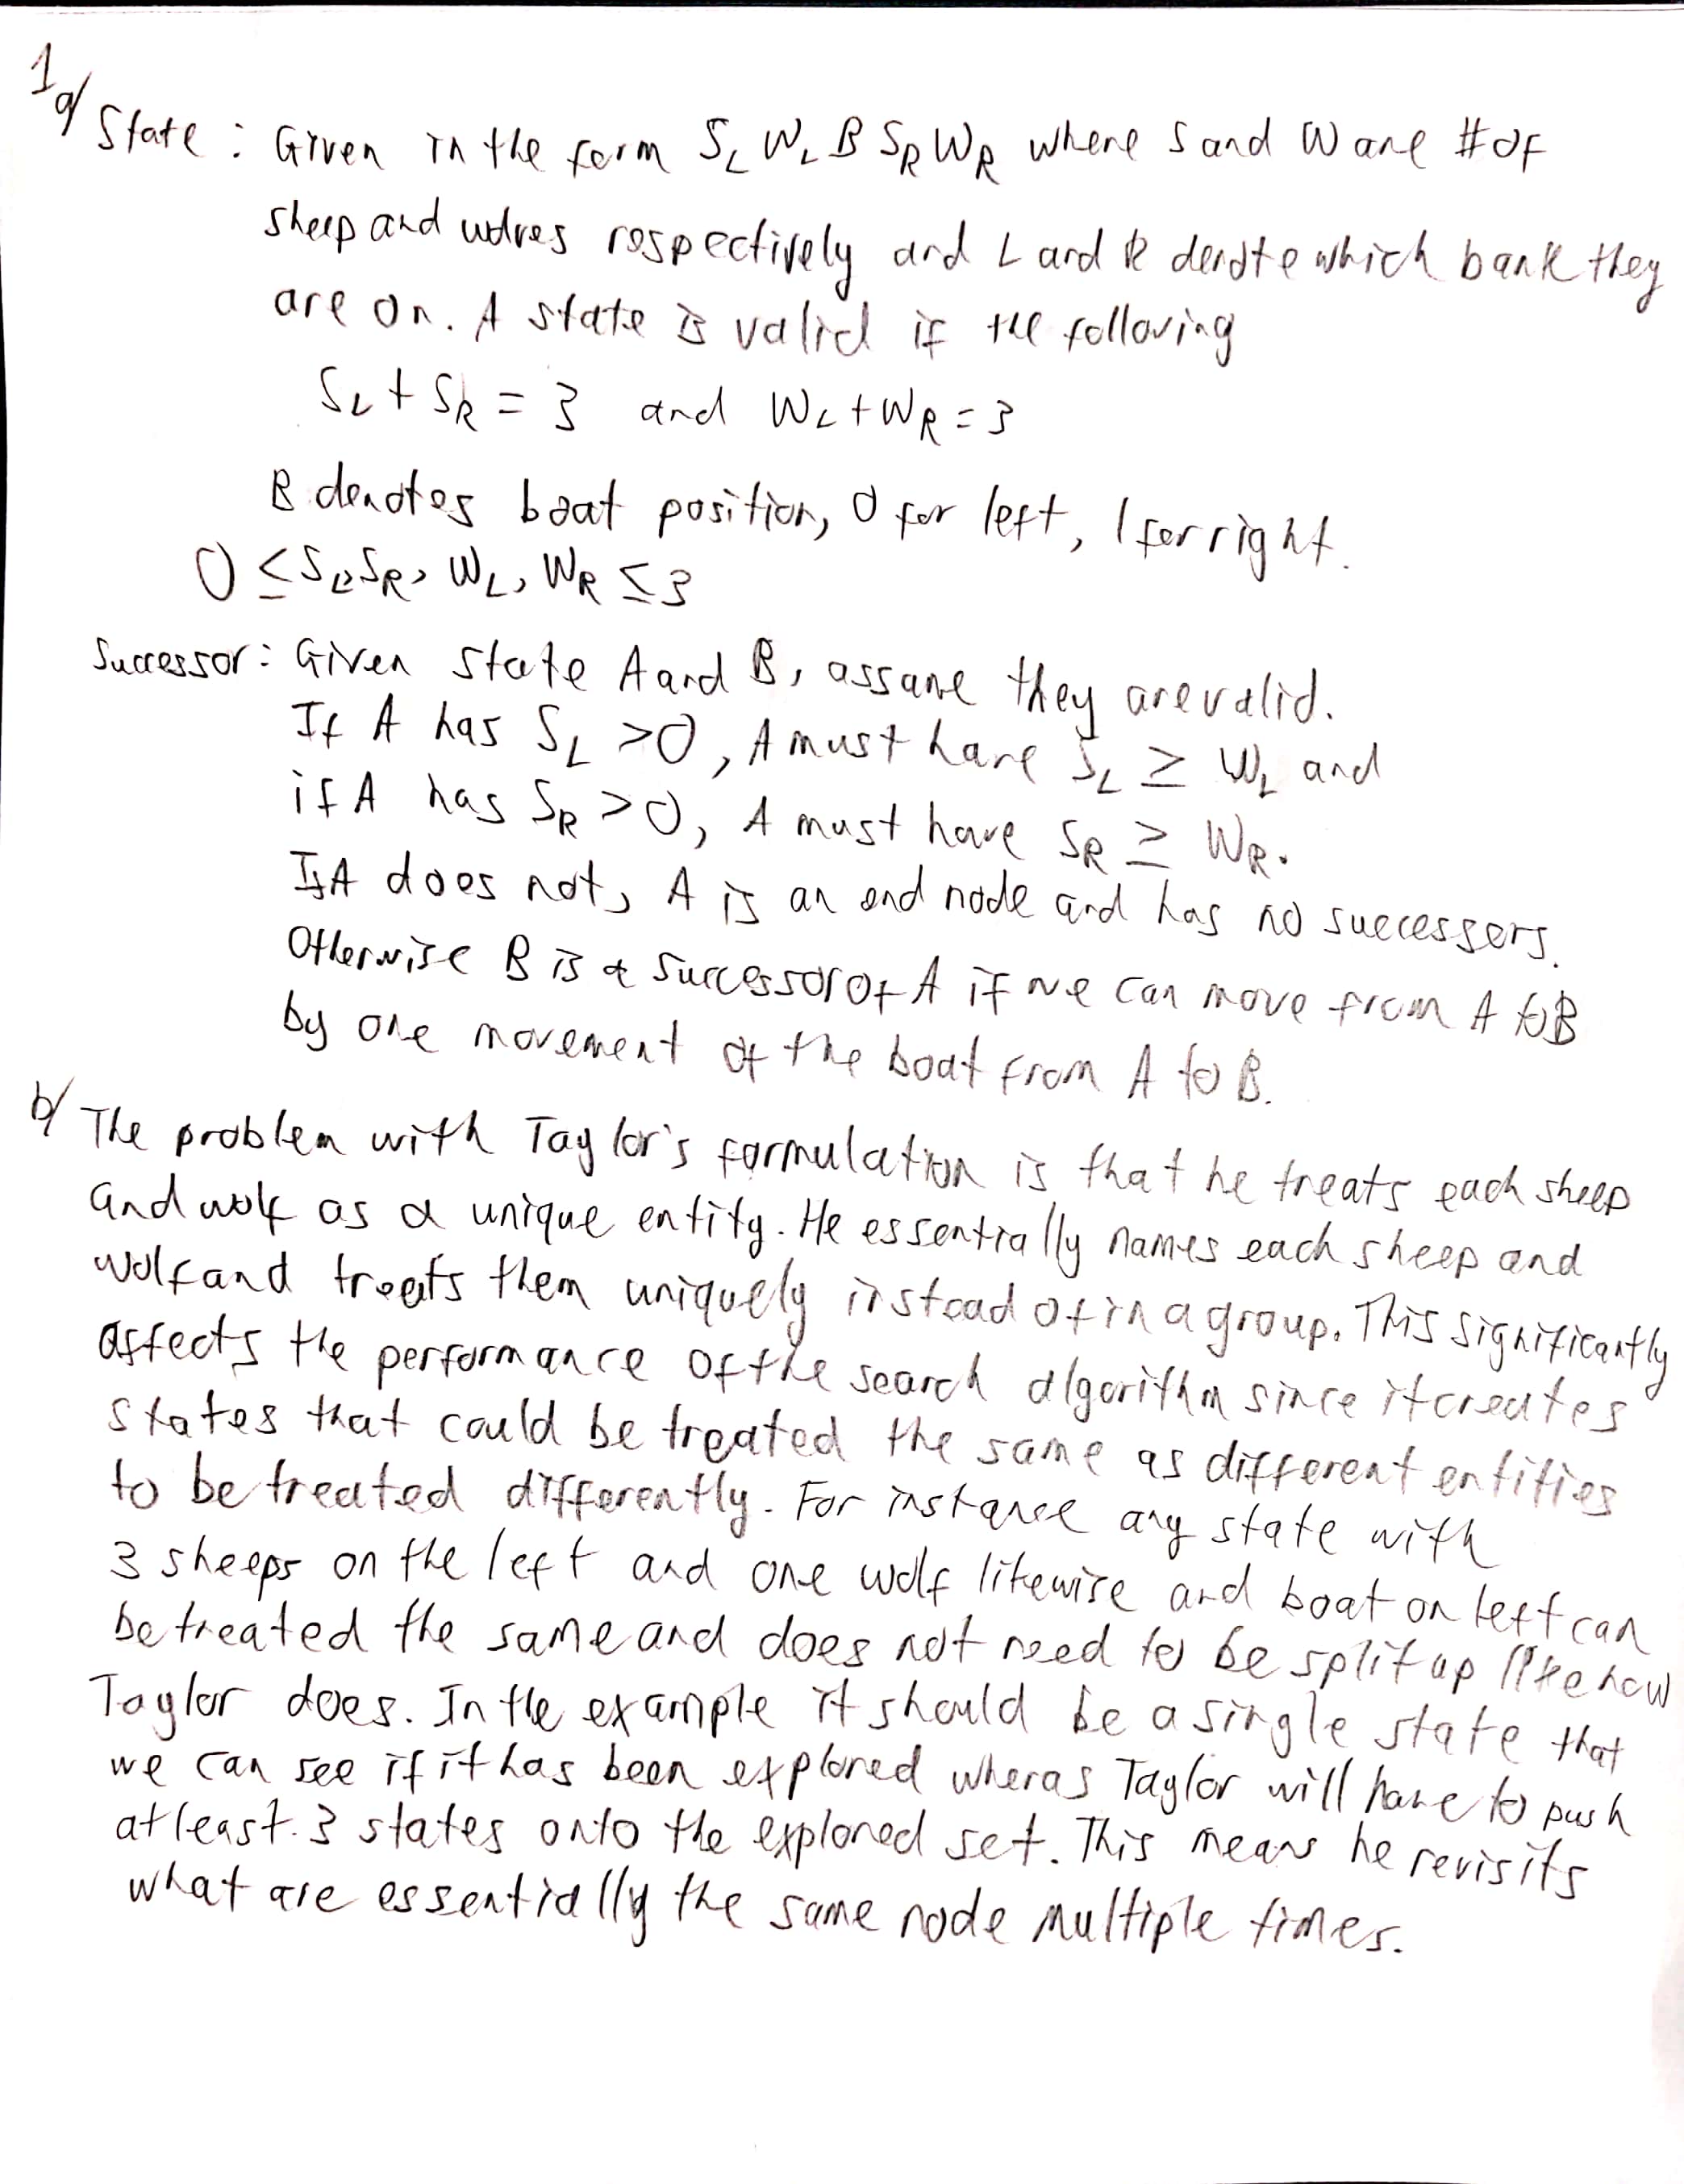 1
a/ State : Given in the form S_L W_L B S_R W_R where S and W are # of
sheep and wolves respectively and L and R denote which bank they
are on. A state is valid if the following
S_L + S_R = 3 and W_L + W_R = 3
B denotes boat position, 0 for left, 1 for right.
0 ≤ S_L, S_R, W_L, W_R ≤ 3
Successor: Given state A and B, assume they are valid.
If A has S_L > 0, A must have S_L ≥ W_L and
if A has S_R > 0, A must have S_R ≥ W_R.
If A does not, A is an end node and has no successors.
Otherwise B is a successor of A if we can move from A to B
by one movement of the boat from A to B.
b/ The problem with Taylor's formulation is that he treats each sheep
and wolf as a unique entity. He essentially names each sheep and
wolf and treats them uniquely instead of in a group. This significantly
affects the performance of the search algorithm since it creates
states that could be treated the same as different entities
to be treated differently. For instance any state with
3 sheeps on the left and one wolf likewise and boat on left can
be treated the same and does not need to be split up like how
Taylor does. In the example it should be a single state that
we can see if it has been explored wheras Taylor will have to push
at least 3 states onto the explored set. This means he revisits
what are essentially the same node multiple times.